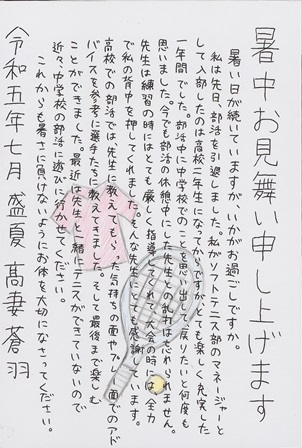 暑中お見舞い申し上げます
暑い日が続いていますが、いかがお過ごしですか。
私は先日、部活を引退しました。私がソフトテニス部のマネージャーと
して入部したのは高校二年生になってからですが、とても楽しく充実した
一年間でした。部活中に中学校でのことを思い出して、戻りたいと何度も
思いました。今でも部活の休憩中にした先生との乱打は忘れられません。
先生は練習の時にはとても厳しく指導してくれて、大会の時には、全力
で私の背中を押してくれました。そんな先生にとても感謝しています。
高校での部活では、先生に教えてもらった気持ちの面やプレー面でのアド
バイスを参考に選手たちに教えてきました。そして最後まで楽しむ
ことができました。最近は先生と一緒にテニスができていないので
近々、中学校の部活に遊びに行かせてください。
これからも暑さに負けないようにお体を大切になさってください。
令和五年七月 盛夏 高妻蒼羽